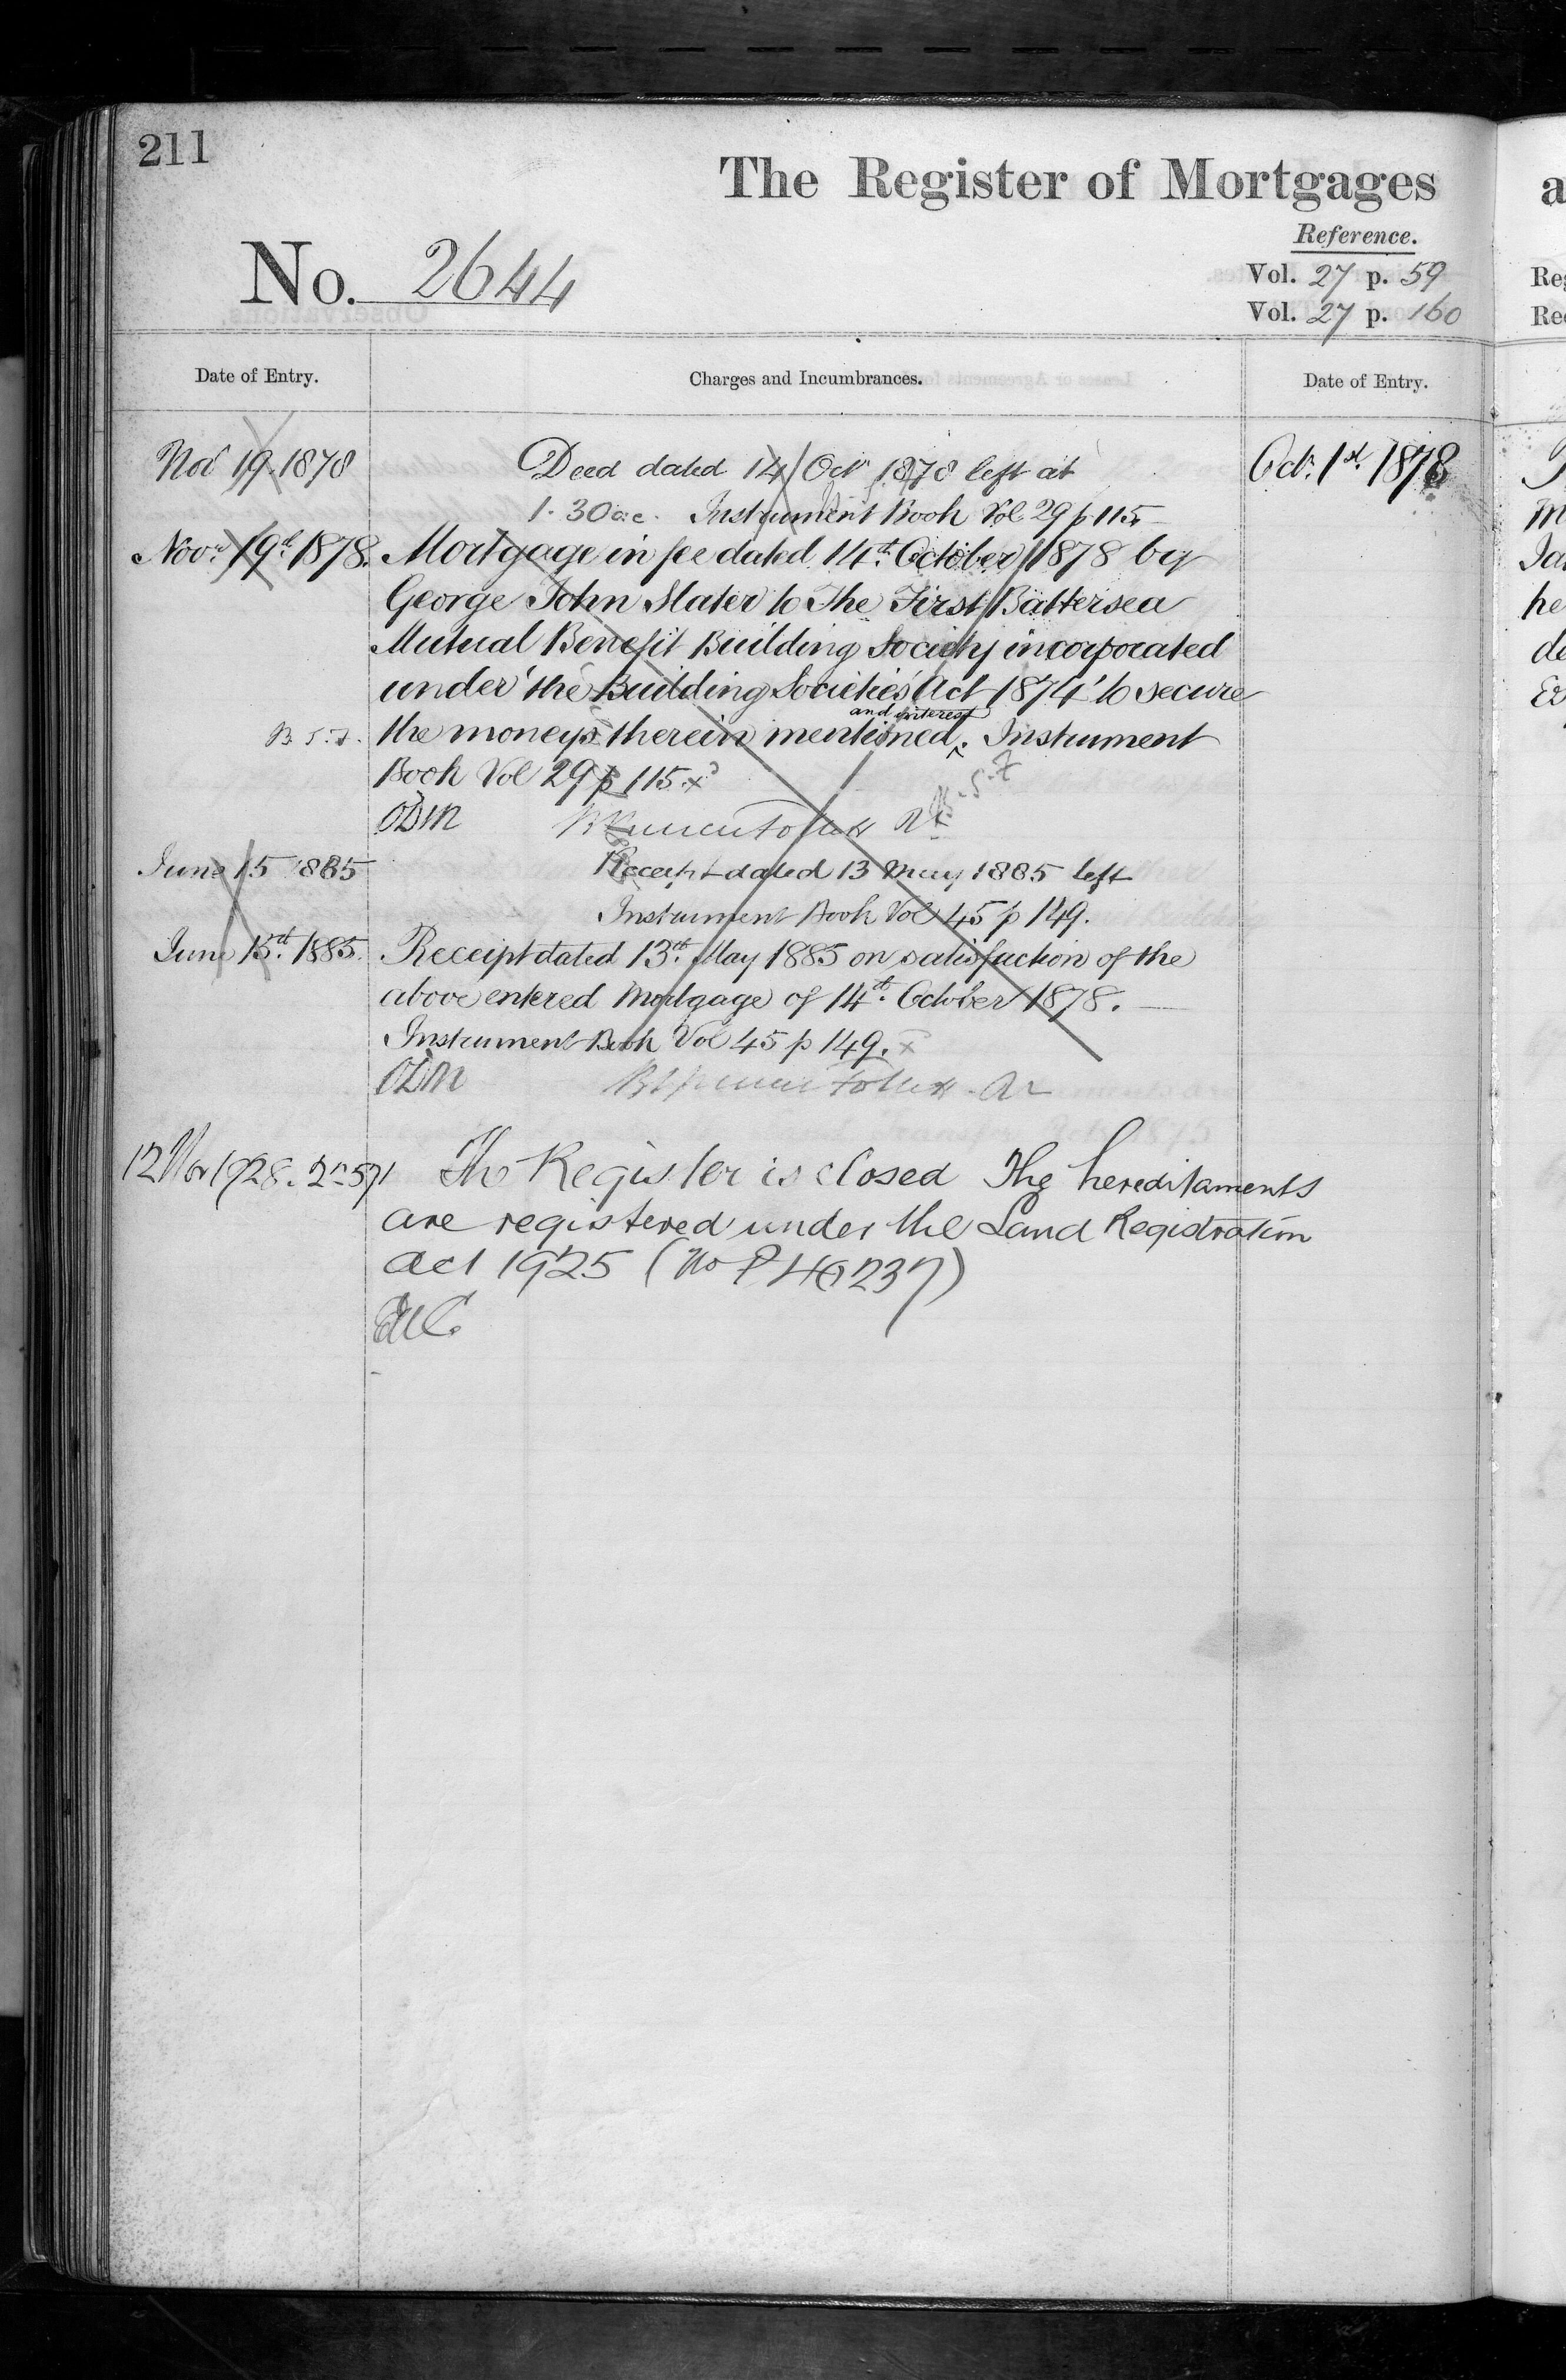 211
The Register of Mortgages
Reference.
No. 2644
Vol. 27 p. 59
Vol. 27 p. 160
Date of Entry.
Charges and Incumbrances.
Date of Entry.
Nov 19. 1878
Deed dated 14 Oct 1878 left at
Oct. 1st. 1878
1.30 Instrument Book Vol 29 p 115
Novr. 19th 1878.
Mortgage in fee dated 14th. October 1878 by
George John Slater to The First Battersea
Mutual Benefit Building Society incorporated
under the Building Societies Act 1874 to secure
and interest
the moneys therein mentioned. Instrument
Book Vol 29 p 115.
ODM
June 15 1885
Receipt dated 13 May 1885 left
Instrument Book Vol 45 p 149.
June 15th. 1885.
Receipt dated 13th. May 1885 on satisfaction of the
above entered Mortgage of 14th. October 1878.
Instrument Book Vol 45 p 149.
ODM
12 1928.
The Register is closed The hereditaments
are registered under the Land Registration
Act 1925 (No P